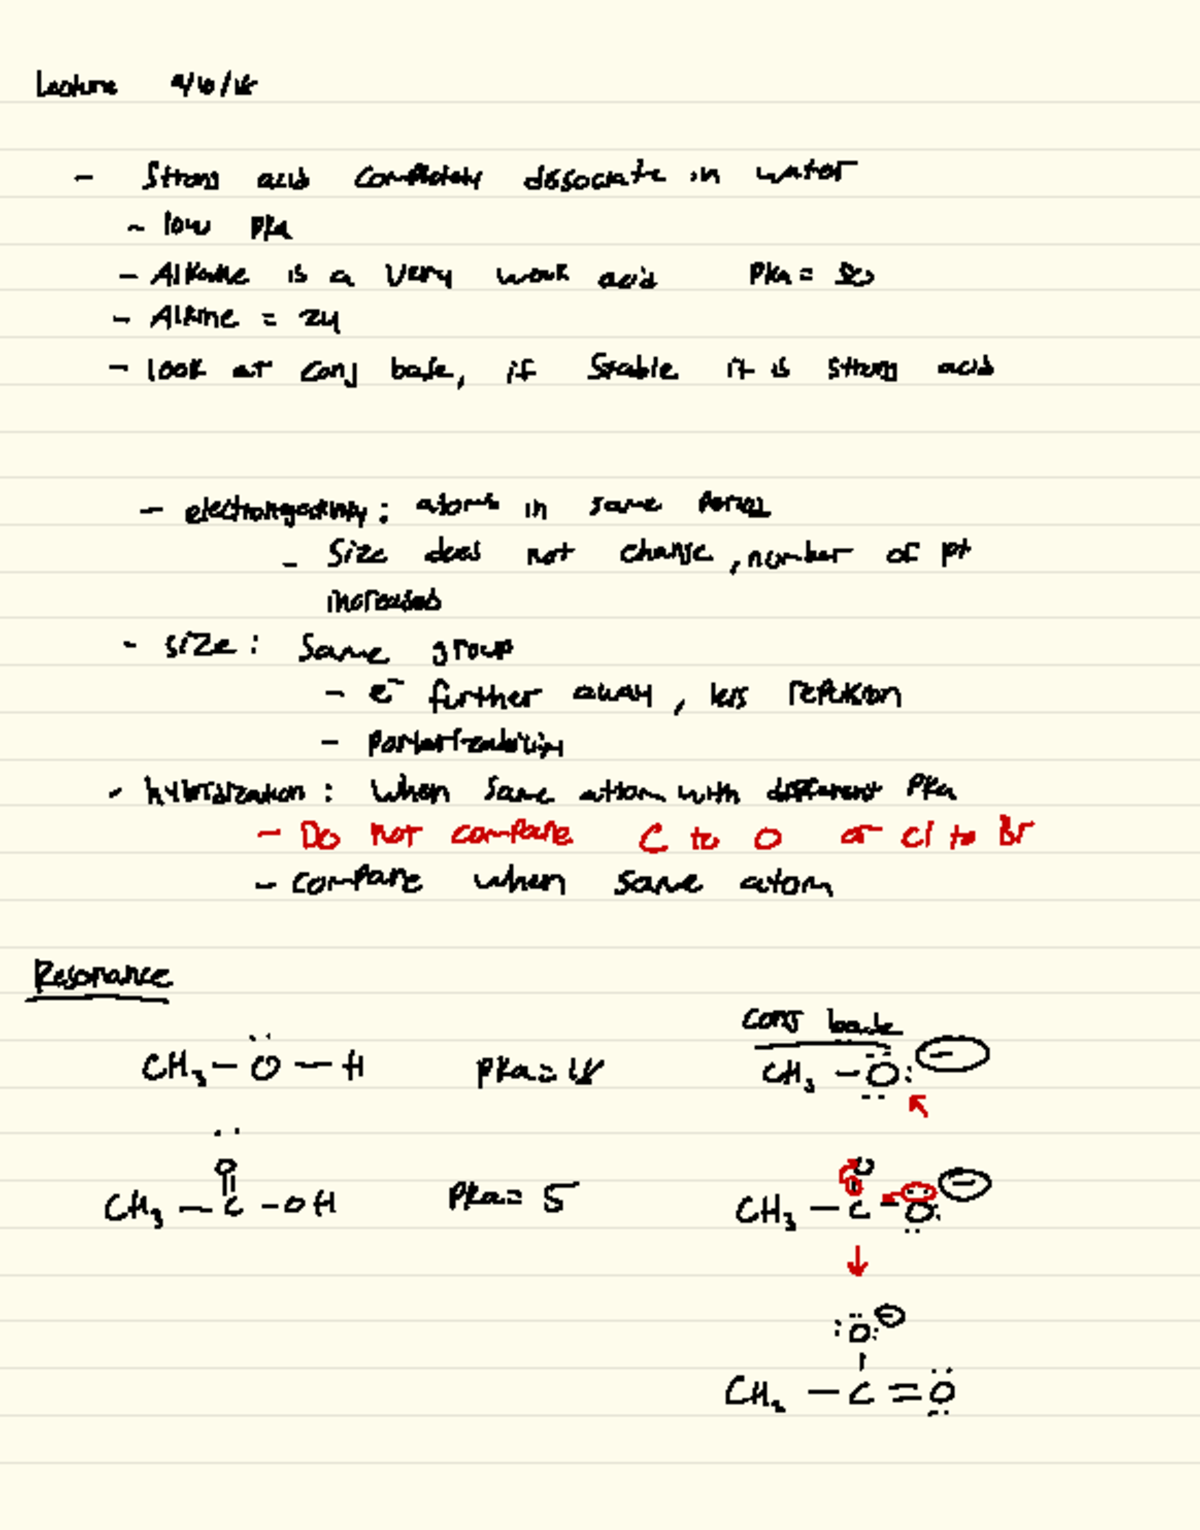 Lecture
- Strong acid completely dissociate in water
- low pka
- Alkane is a very weak acid pka = 50
- Alkine = 24
- look at conj base, if stable it is strong acid
- electronegativity: atoms in same period
- Size does not change, number of pt
increases
- size: Same group
- e⁻ further away, less repulsion
- hybridization: When same atom with different pka
- Do not compare C to O or Cl to Br
- compare when same atom
Resonance
conj base
CH₃-Ö-H pka= CH₃-Ö: -
O O -
CH₃-C-OH pka= 5 CH₃-C-O:
:Ö: ⊖
CH₂-C=Ö